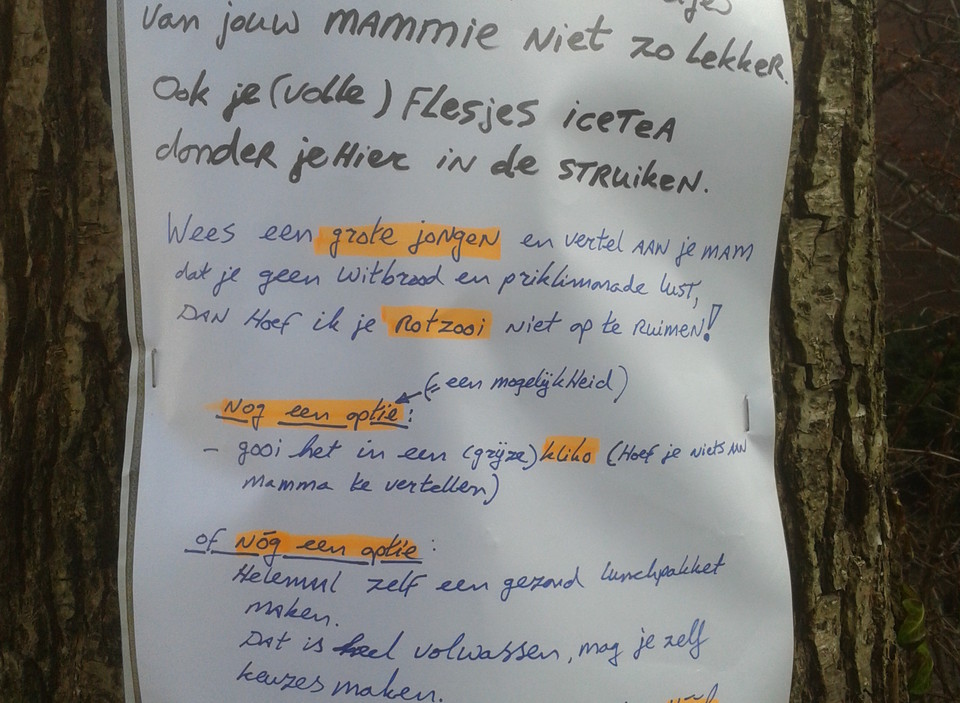 van jouw MAMMIE Niet zo Lekker.
Ook je (volle) Flesjes iceTeA
donder je Hier in de STRUIKEN.
Wees een grote jongen en vertel AAN je MAM
dat je geen witbrood en priklimonade lust,
DAN Hoef ik je Rotzooi niet op te Ruimen!
(= een mogelijkHeid)
Nog een optie:
- gooi het in een (grijze) kliko (Hoef je niets AAN
mamma te vertellen)
of Nóg een optie:
Helemaal zelf een gezond lunchpakket
maken.
DAT is heel volwassen, mag je zelf
keuzes maken.